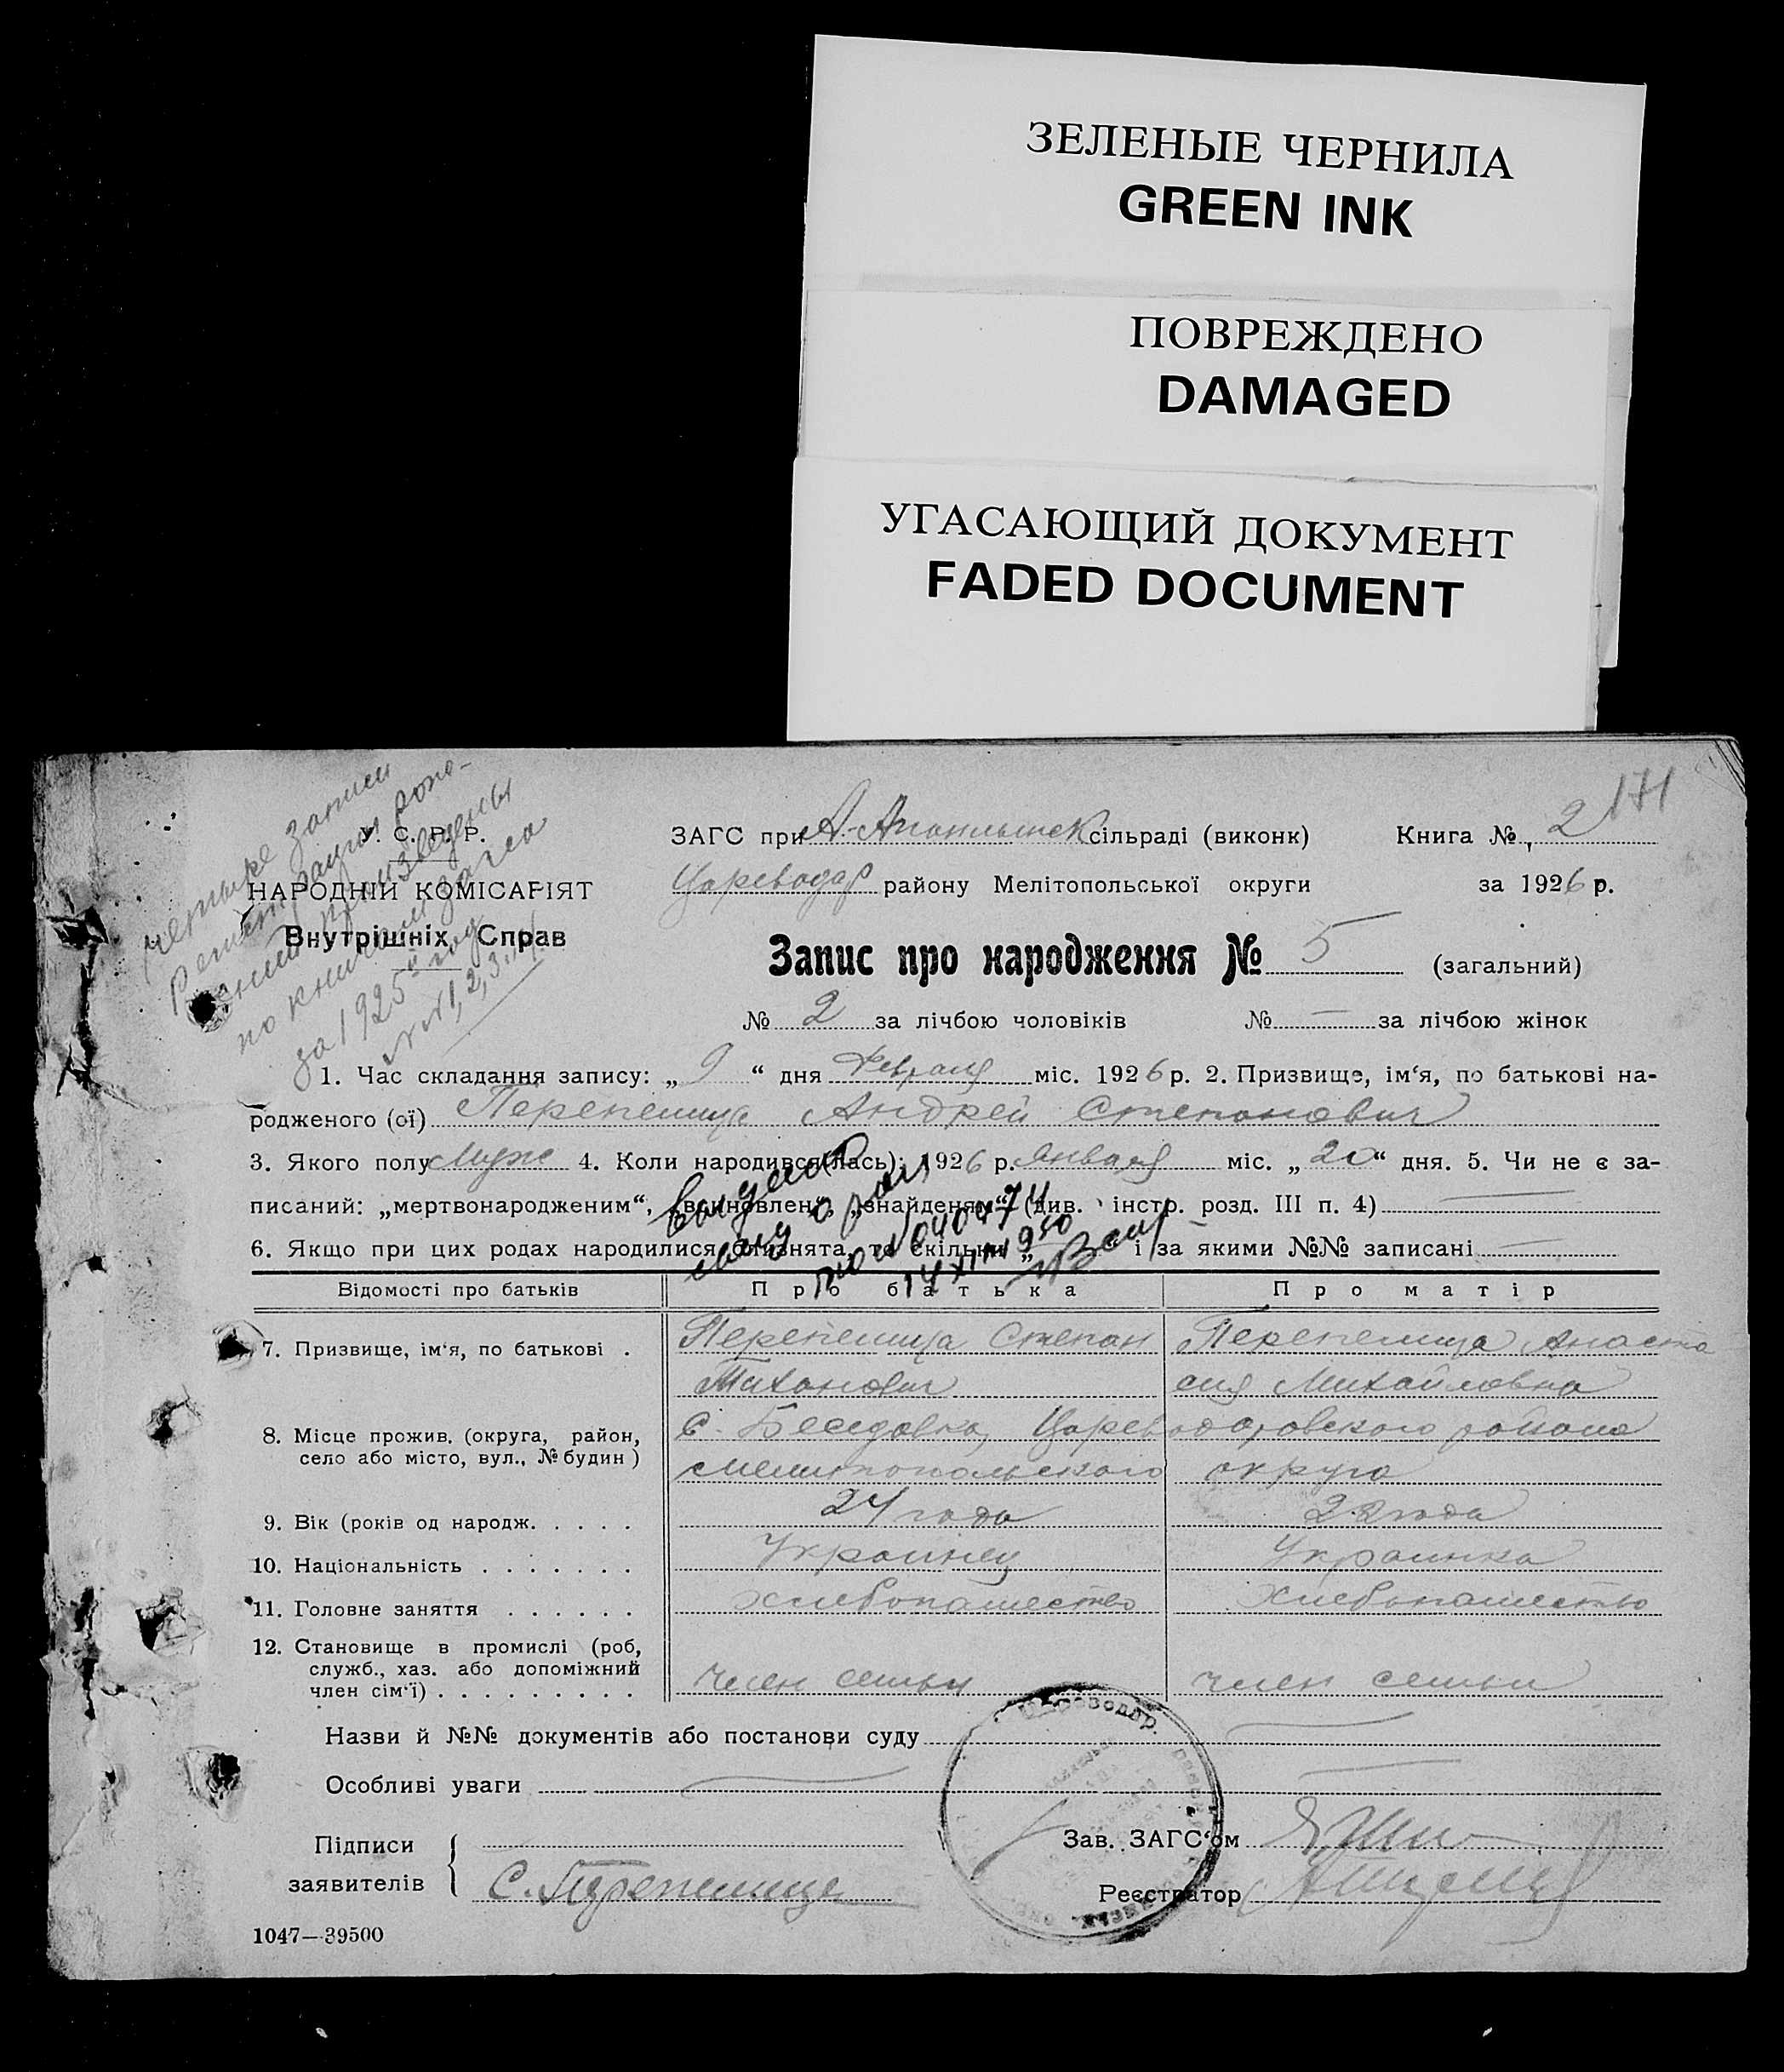 ЗЕЛЕНЫЕ ЧЕРНИЛА
GREEN INK
ПОВРЕЖДЕНО
DAMAGED
УГАСАЮЩИЙ ДОКУМЕНТ
FADED DOCUMENT
171
четыре записи
по книгам загса
за 1925й год
№№ 1, 2, 3, 4.
У. С. Р. Р.
НАРОДНІЙ КОМІСАРІЯТ
Внутрішніх Справ
ЗАГС при сільраді (виконк) Книга № 2
Цареводар району Мелітопольської округи за 1926 р.
Запис про народження № 5 (загальний)
№ 2 за лічбою чоловіків № — за лічбою жінок
1. Час складання запису: „ 9 “ дня Февраля міс. 1926 р. 2. Призвище, ім‘я, по батькові на-
родженого (ої) Перепелица Андрей Степанович
3. Якого полу Муж 4. Коли народився(лась): 1926 р. Января міс. „ 20 “ дня. 5. Чи не є за-
писаний: „мертвонародженим“, „всиновлен“, „знайденям“ (див. інстр. розд. III п. 4) —
6. Якщо при цих родах народилися близнята, то скільки „ “ і за якими №№ записані —
Відомості про батьків Про батька Про матір
7. Призвище, ім‘я, по батькові . Перепелица Степан Перепелица Анаста
Тиханович сия Михайловна
8. Місце прожив. (округа, район, с. Беседовка, Царев одаровского района
село або місто, вул., № будин) Мелитопольского округа
9. Вік (років од народж. . . . . 24 года 22 года
10. Національність . . . . . . . Украинец Украинка
11. Головне заняття . . . . . . Хлебопашество Хлебопашество
12. Становище в промислі (роб,
служб., хаз. або допоміжний
член сім‘ї) . . . . . . . . . член семьи член семьи
Назви й №№ документів або постанови суду —
Особливі уваги —
Підписи
заявителів С. Перепелица
Зав. ЗАГС‘ом
Реєстратор
1047—39500